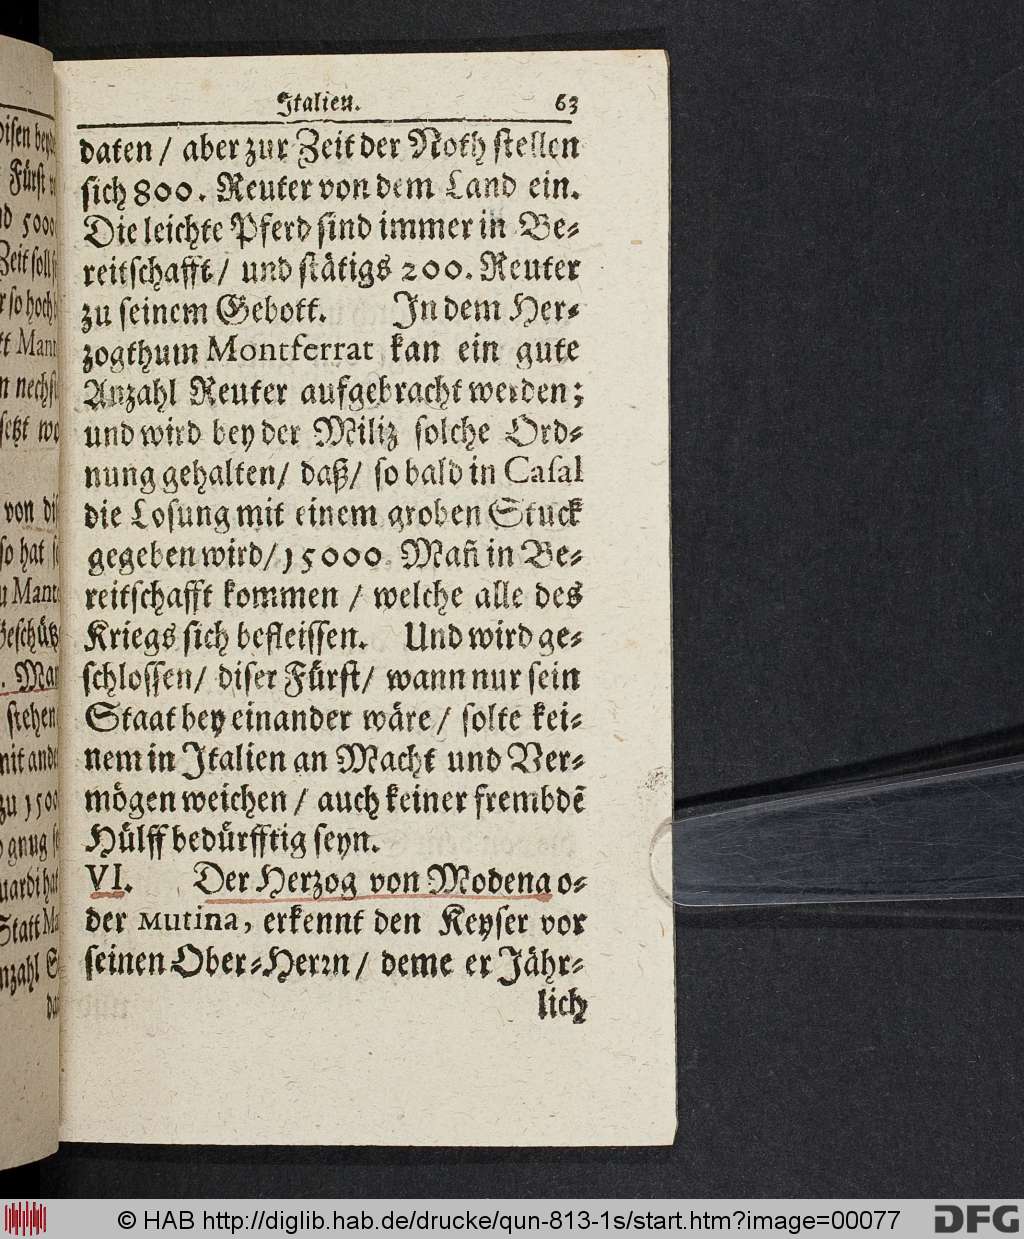 Italien. 63
daten / aber zur Zeit der Noth stellen
sich 800. Reuter von dem Land ein.
Die leichte Pferd sind immer in Be-
reitschafft / und stätigs 200. Reuter
zu seinem Gebott. In dem Her-
zogthum Montferrat kan ein gute
Anzahl Reuter aufgebracht werden;
und wird bey der Miliz solche Ord-
nung gehalten / daß / so bald in Casal
die Losung mit einem groben Stuck
gegeben wird / 15000. Mañ in Be-
reitschafft kommen / welche alle des
Kriegs sich befleissen. Und wird ge-
schlossen / diser Fürst / wann nur sein
Staat bey einander wäre / solte kei-
nem in Italien an Macht und Ver-
mögen weichen / auch keiner frembdẽ
Hülff bedürfftig seyn.
VI. Der Herzog von Modena o-
der Mutina, erkennt den Keyser vor
seinen Ober-Herrn / deme er Jähr-
lich
© HAB http://diglib.hab.de/drucke/qun-813-1s/start.htm?image=00077
DFG